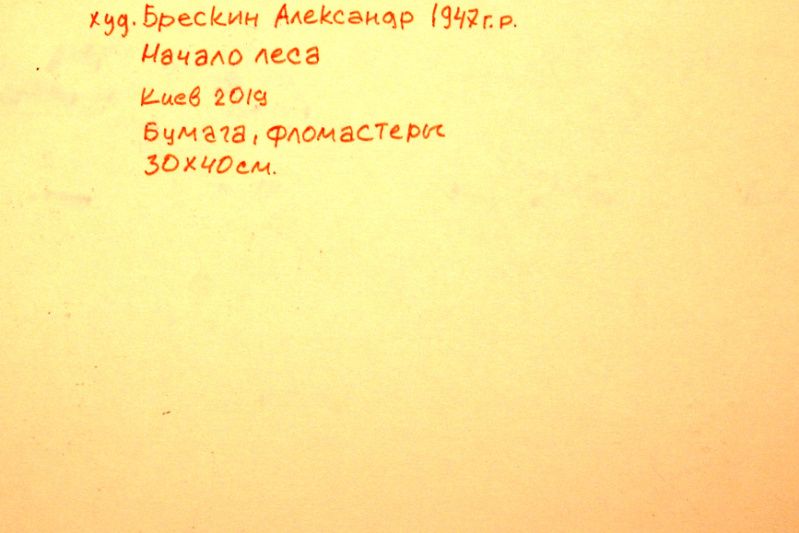 худ. Брескин Александр 1947г.р.
Начало леса
Киев 2019
Бумага, фломастеры
30х40см.